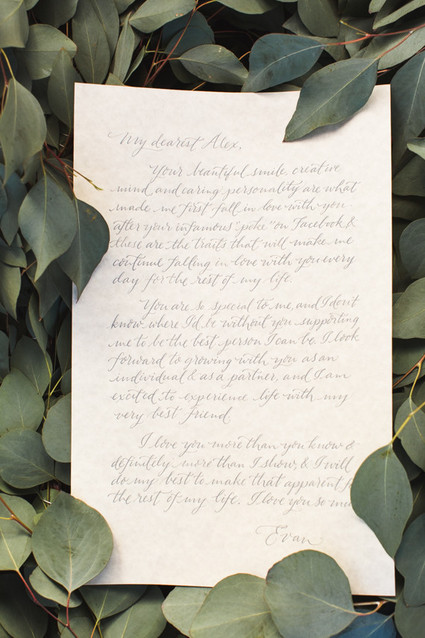 My dearest Alex,
Your beautiful smile, creative
mind and caring personality are what
made me first fall in love with you
after your infamous "poke" on Facebook &
these are the traits that will make me
continue falling in love with you every
day for the rest of my life.
You are so special to me and I don't
know where I'd be without you supporting
me to be the best person I can be. I look
forward to growing with you as an
individual & as a partner, and I am
excited to experience life with my
very best friend.
I love you more than you know &
definitely more than I show, & I will
do my best to make that apparent
the rest of my life. I love you so
Evan